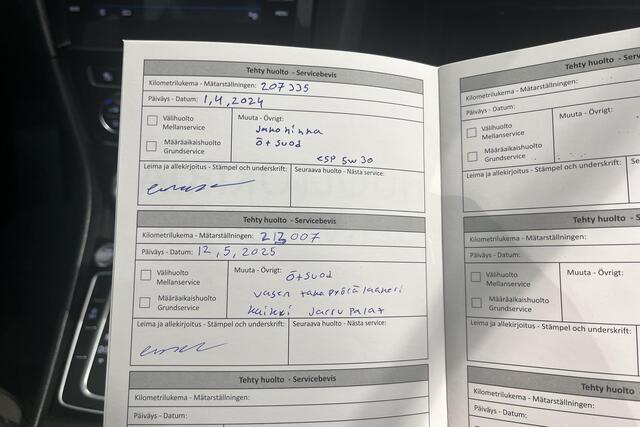 MENU
Tehty huolto - Servicebevis
Kilometrilukema - Mätarställningen: 207335
Päiväys - Datum: 1,4,2024
Välihuolto
Mellanservice
Määräaikaishuolto
Grundservice
Muuta - Övrigt:
Jakohihna
ö+suod
ESP 5w30
Leima ja allekirjoitus - Stämpel och underskrift:
Seuraava huolto - Nästa service:
Tehty huolto - Servicebevis
Kilometrilukema - Mätarställningen: 212007
Päiväys - Datum: 12,5,2025
Välihuolto
Mellanservice
Määräaikaishuolto
Grundservice
Muuta - Övrigt:
ö+suod
vasen takapyörälaakeri
kaikki Jarrupalat
Leima ja allekirjoitus - Stämpel och underskrift:
Seuraava huolto - Nästa service:
Tehty huolto - Servicebevis
Kilometrilukema - Mätarställningen:
Päiväys - Datum:
Tehty huolto - Serv
Kilometrilukema - Mätarställningen:
Päiväys - Datum:
Välihuolto
Mellanservice
Määräaikaishuolto
Grundservice
Muuta - Övrigt:
Leima ja allekirjoitus - Stämpel och underskrift:
Se
Tehty huolto - S
Kilometrilukema - Mätarställningen:
Päiväys - Datum:
Välihuolto
Mellanservice
Määräaikaishuolto
Grundservice
Muuta - Övrigt:
Leima ja allekirjoitus - Stämpel och underskrift:
Tehty huolto
Kilometrilukema - Mätarställningen:
Päiväys - Datum: